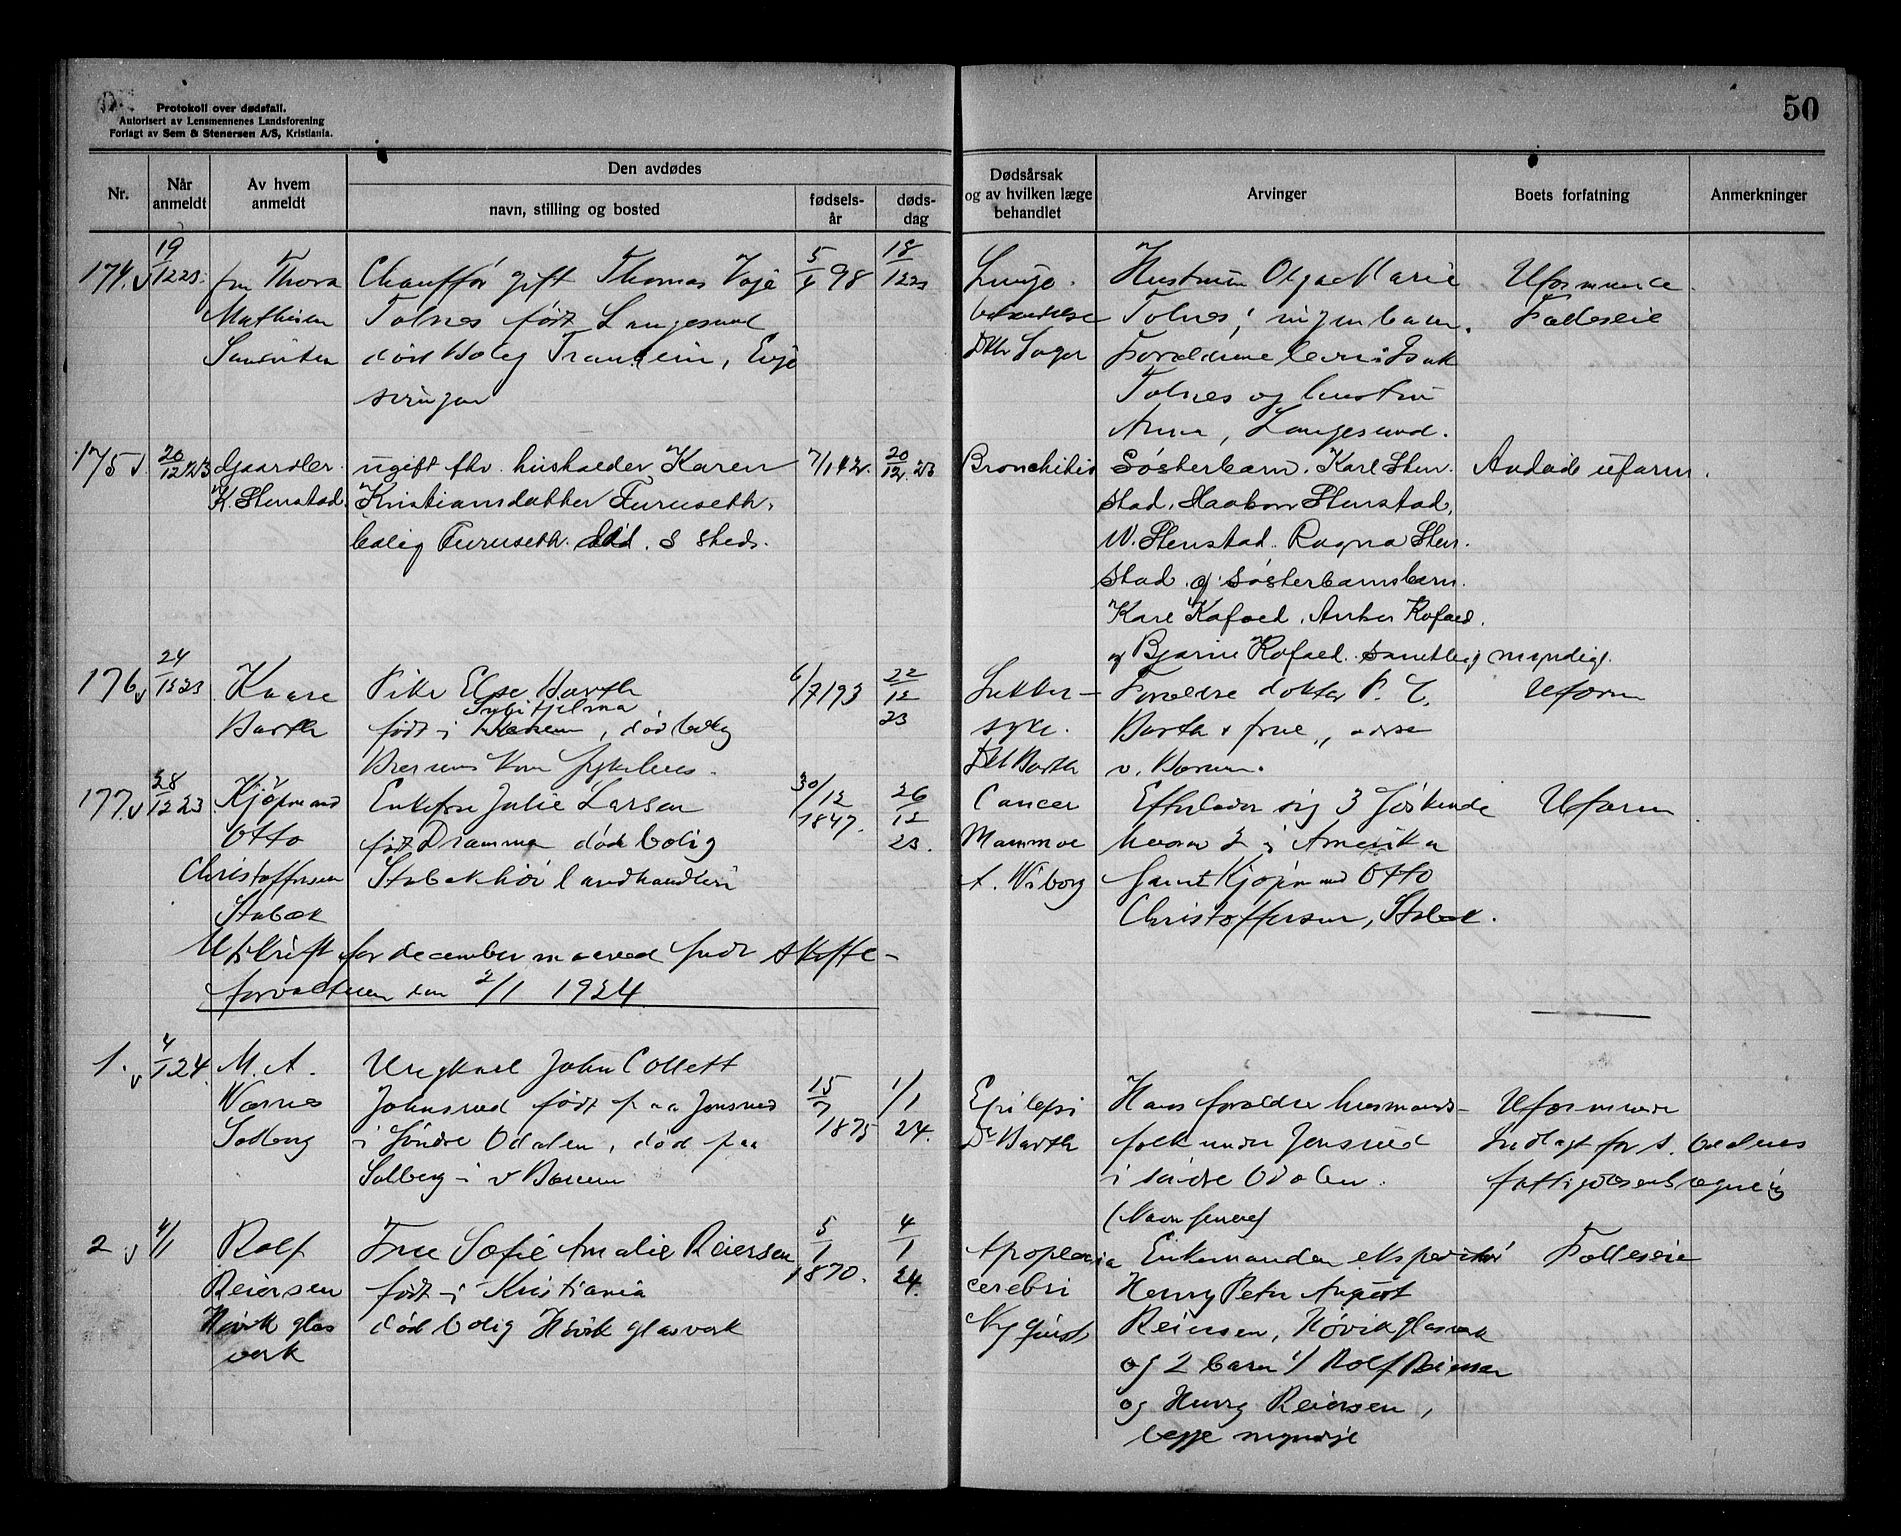 Protokoll over dødsfall.
Autorisert av Lensmennenes Landsforening
Forlagt av Sem & Stenersen A/S, Kristiania.
50
Nr.
Når anmeldt
Av hvem anmeldt
Den avdødes
navn, stilling og bosted
fødsels-år
døds-dag
Dødsårsak og av hvilken læge behandlet
Arvinger
Boets forfatning
Anmerkninger
174. 19/12 23. fru Thora
Mathisen
Chauffør gift Thomas
Tolnes født Langesund
død bolig
5/4 98
18/12 23
Hustru Olga Marie
Tolnes, ingen barn.
Forældrene Isak
Tolnes og hustru
Anna, Langesund.
Uformuende
Fælleseie
175 20/12 23 Gaardbr.
K. Stenstad.
ugift fhv. husholder Karen
Kristiansdatter Furuseth.
bolig Furuseth. død. s steds.
20/12 23
Bronchitis
Søsterbarn. Karl Sten-
stad, Haakon Stenstad,
W. Stenstad. Ragna Sten-
stad og søsterbarnsbarn.
Kare Kofoed. Anker Kofoed.
og Bjarne Kofoed. samtlig myndige.
Avdøde uform.
176 24/12 23 Kaare
Barth
Pike Else Barth
født i , død bolig
6/7 193
22/12 23
Sukker-
syke.
Barth
Forældre doktor P. C.
Barth & frue
v. Bærum.
Uform
177. 28/12 23. Kjøpmand
Otto
Christoffersen
Stabæk
Enkefru Julie Larsen
født Drammen død bolig
Stabækhøi landhandleri
30/12 1847.
26/12 23.
Cancer
Mammae
A. Wiborg
Efterlader sig 3 søskende
hvorav 2 i Amerika
samt Kjøpmand Otto
Christoffersen, Stabæk.
Uform
Utskrift for december maaned sendt skifte-
forvalteren den 2/1 1924
1. 4/1 24. M. A.
Wærnes
Solberg
Ungkarl John Collett
Johnsrud født paa Jonsrud
i søndre Odalen, død paa
Solberg i v Bærum
15/7 1875
1/1 24.
Epilepsi
Dr Barth
Hans forældre husmands-
folk under Jonsrud
i søndre Odalen.
Uformuende
Indlagt for s. Odalens
fattigvæsens regning
2 4/1 Rolf
Reiersen
Høvik glas
verk
Frue Sofie Amalie Reiersen
født i Kristiania
død bolig Høvik glasverk
5/1 1870.
4/1 24.
Apoplexia
cerebri
Nyquist
Enkemanden ekspeditør
Henry Peter August
Reiersen, Høvik glasverk
og 2 barn 1/ Rolf Reiersen
og Henry Reiersen,
begge myndige
Fælleseie